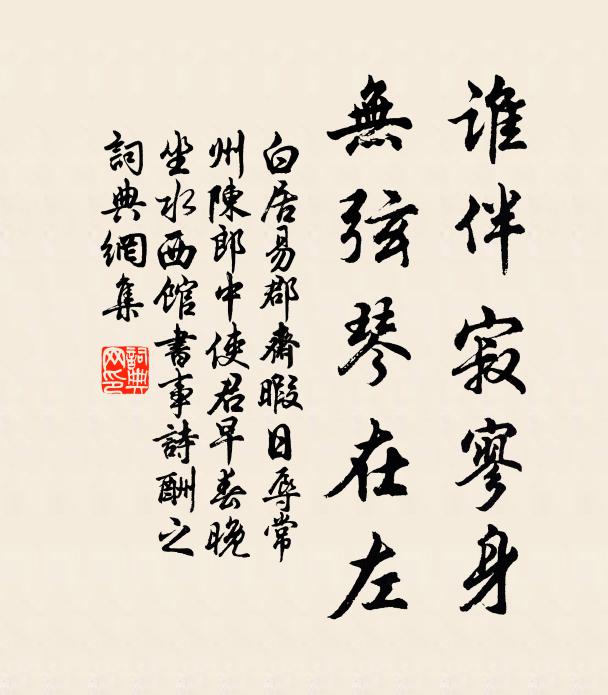 谁伴寂寥身
無弦琴在左
白居易郡齋暇日辱常
州陳郎中使君早春晚
坐水西館書事詩酬之
詞典網集
詞典
网印